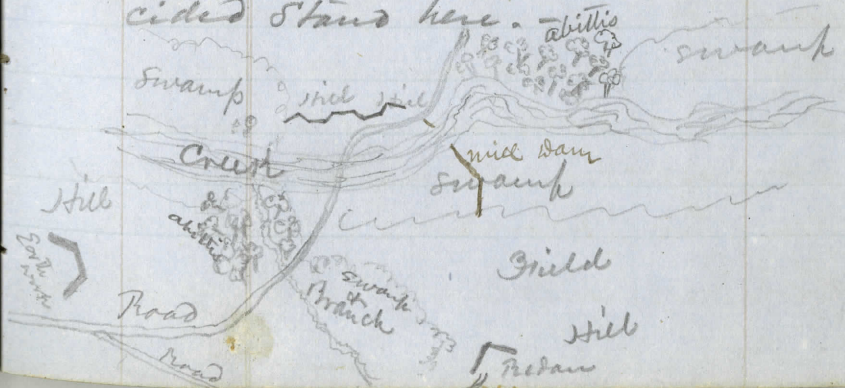 cided Stand here. -
abittis
Swamp
Swamp
Hill Hill
mill Dam
Creek
Swamp
Hill
abittis
Earth
work
Field
Swamp
&
Branch
Road
Hill
Redan
Road